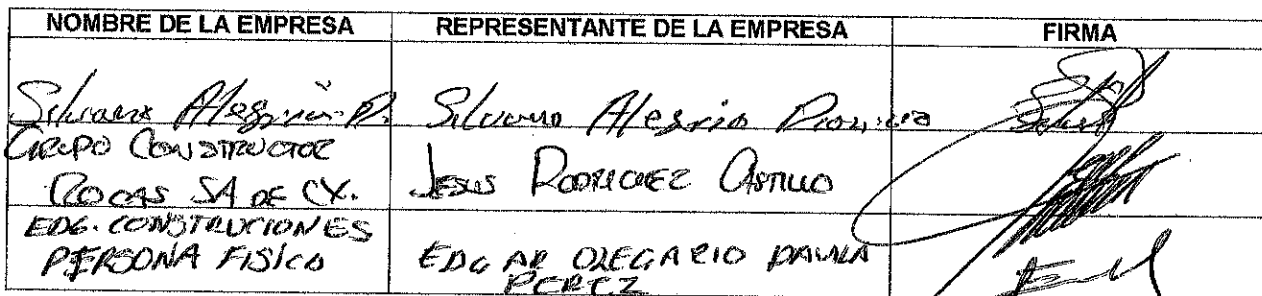 NOMBRE DE LA EMPRESA REPRESENTANTE DE LA EMPRESA FIRMA
Silvano Alegria P. Silvano Alegria
GRUPO CONSTRUCTOR
ROCAS SA DE CV. JESUS RODRIGUEZ CASTILLO
EDG. CONSTRUCIONES
PERSONA FISICO EDGAR OLEGARIO DAVILA
PEREZ